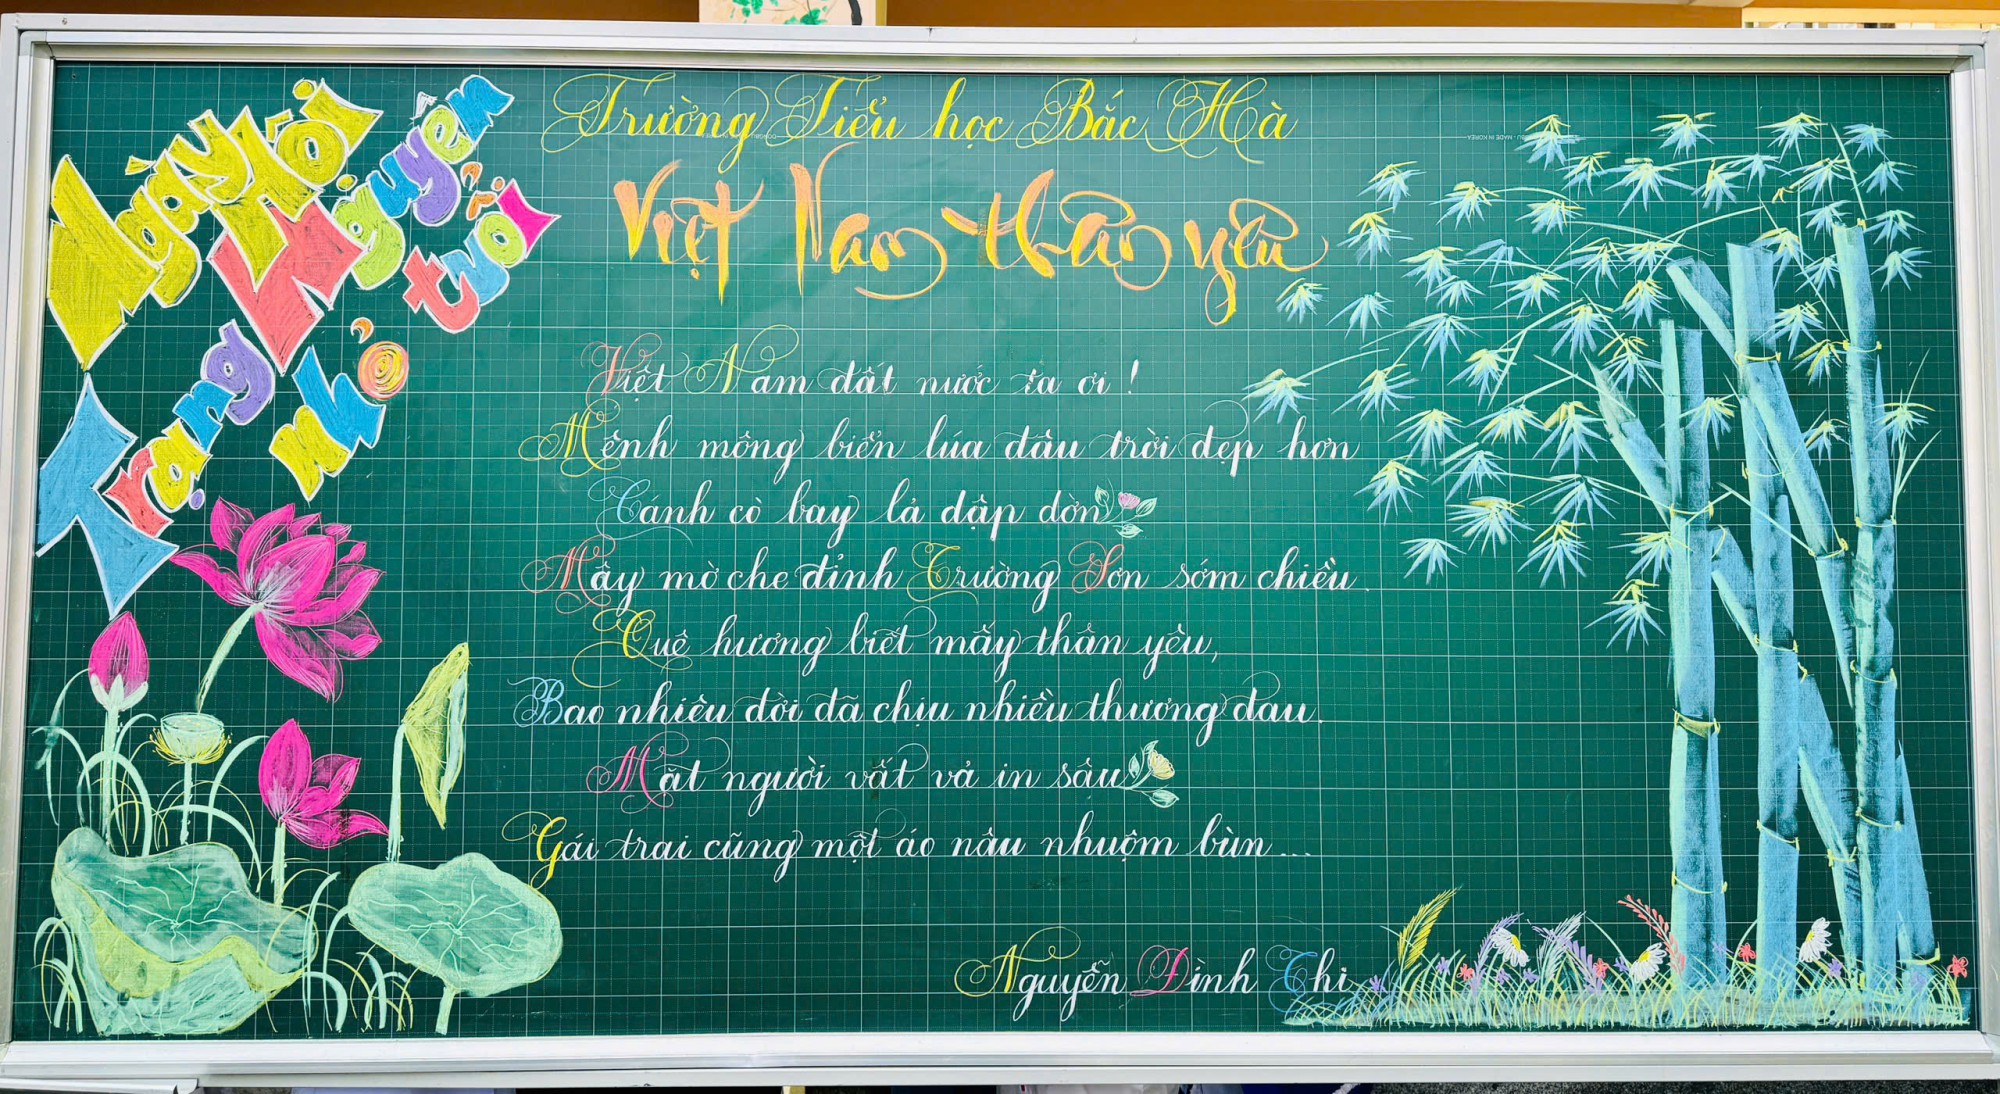 Ngày hội
Trạng nguyên
nhỏ tuổi
Trường Tiểu học Bắc Hà
Việt Nam thân yêu
Việt Nam đất nước ta ơi !
Mênh mông biển lúa đâu trời đẹp hơn
Cánh cò bay lả dập dờn
Mây mờ che đỉnh Trường Sơn sớm chiều.
Quê hương biết mấy thân yêu,
Bao nhiêu đời đã chịu nhiều thương đau.
Mặt người vất vả in sâu
Gái trai cũng một áo nâu nhuộm bùn...
Nguyễn Đình Thi